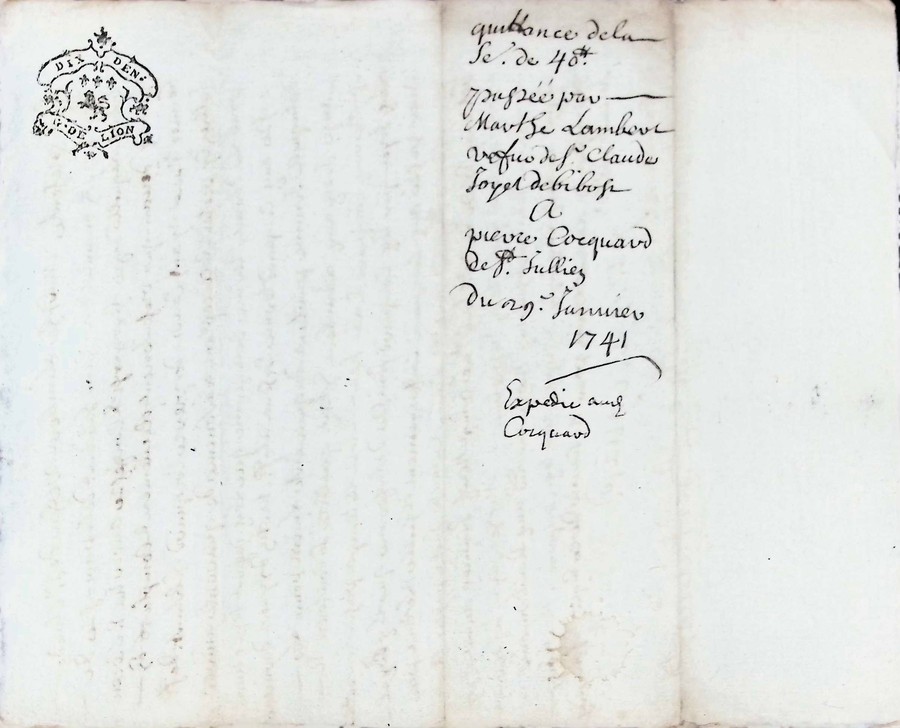 DIX DEN.
G. DE LION
quittance de la
Se. de 40lt.
passée par
Marthe Lambert
vefue de Sr. Claude
Joyet de bibost
A
pierre Cocquard
de St. Jullien
Du 29e. Janvier
1741
Expedié aud
Cocquard